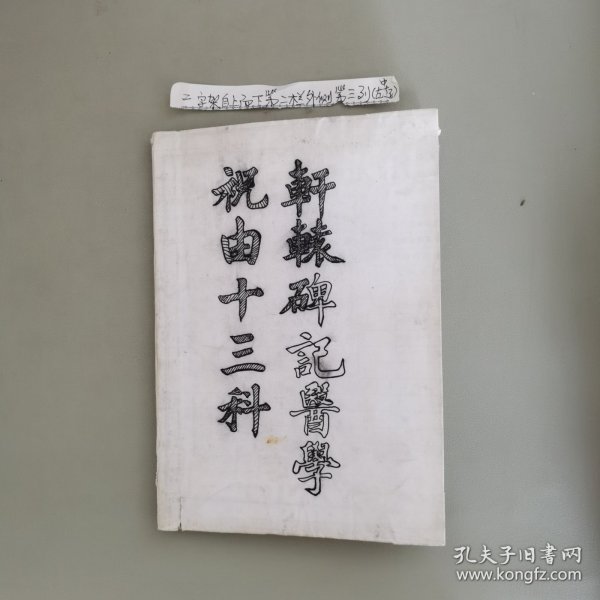 二室架自上而下第二栏外侧第三列(右起)
中
軒轅碑記醫學
祝由十三科
孔夫子旧书网
www.kongfz.com